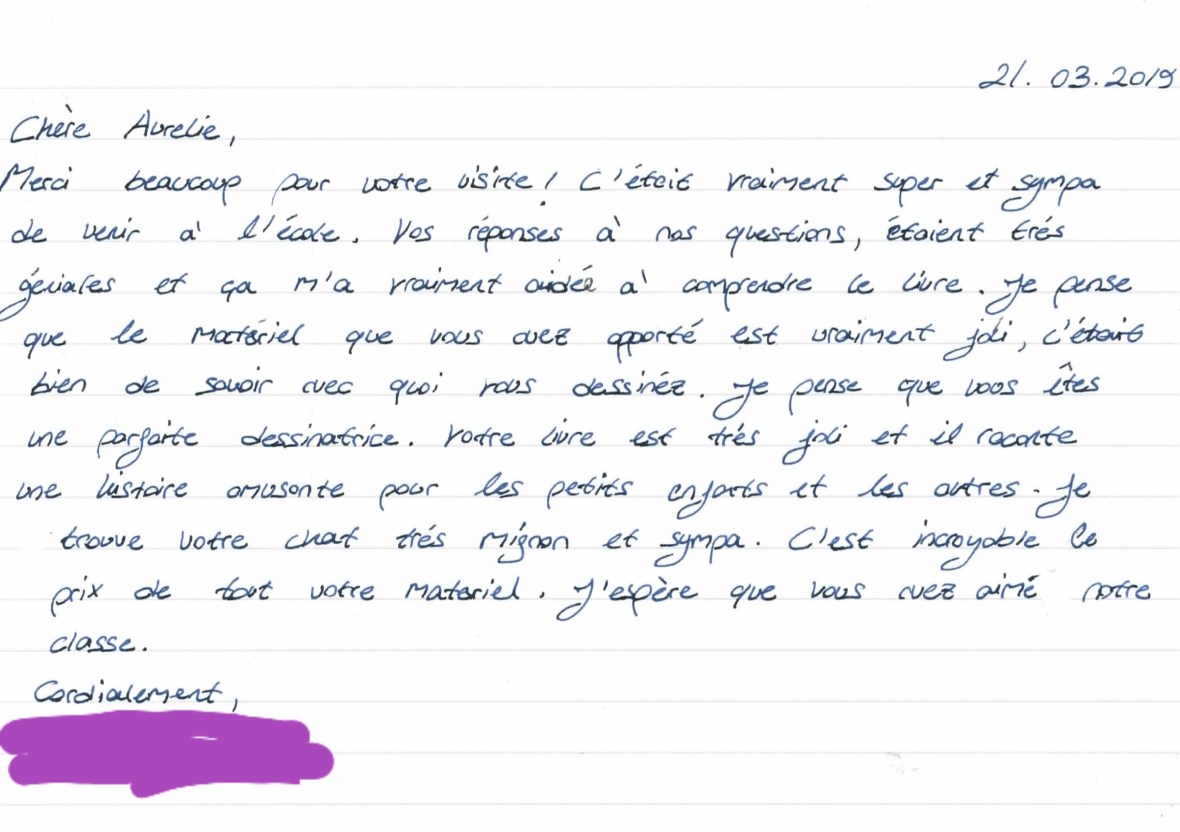 21.03.2019
Chère Aurelie,
Merci beaucoup pour votre visite! C'était vraiment super et sympa
de venir à l'école. Vos réponses à nos questions, étaient trés
géniales et ça m'a vraiment aidée à comprendre le livre. Je pense
que le matériel que vous avez apporté est vraiment joli, c'était
bien de savoir avec quoi vous dessinéz. Je pense que vous êtes
une parfaite dessinatrice. Votre livre est trés joli et il raconte
une histoire amusante pour les petits enfants et les autres. Je
trouve votre chat trés mignon et sympa. C'est incroyable le
prix de tout votre materiel. J'espère que vous avez aimé notre
classe.
Cordialement,